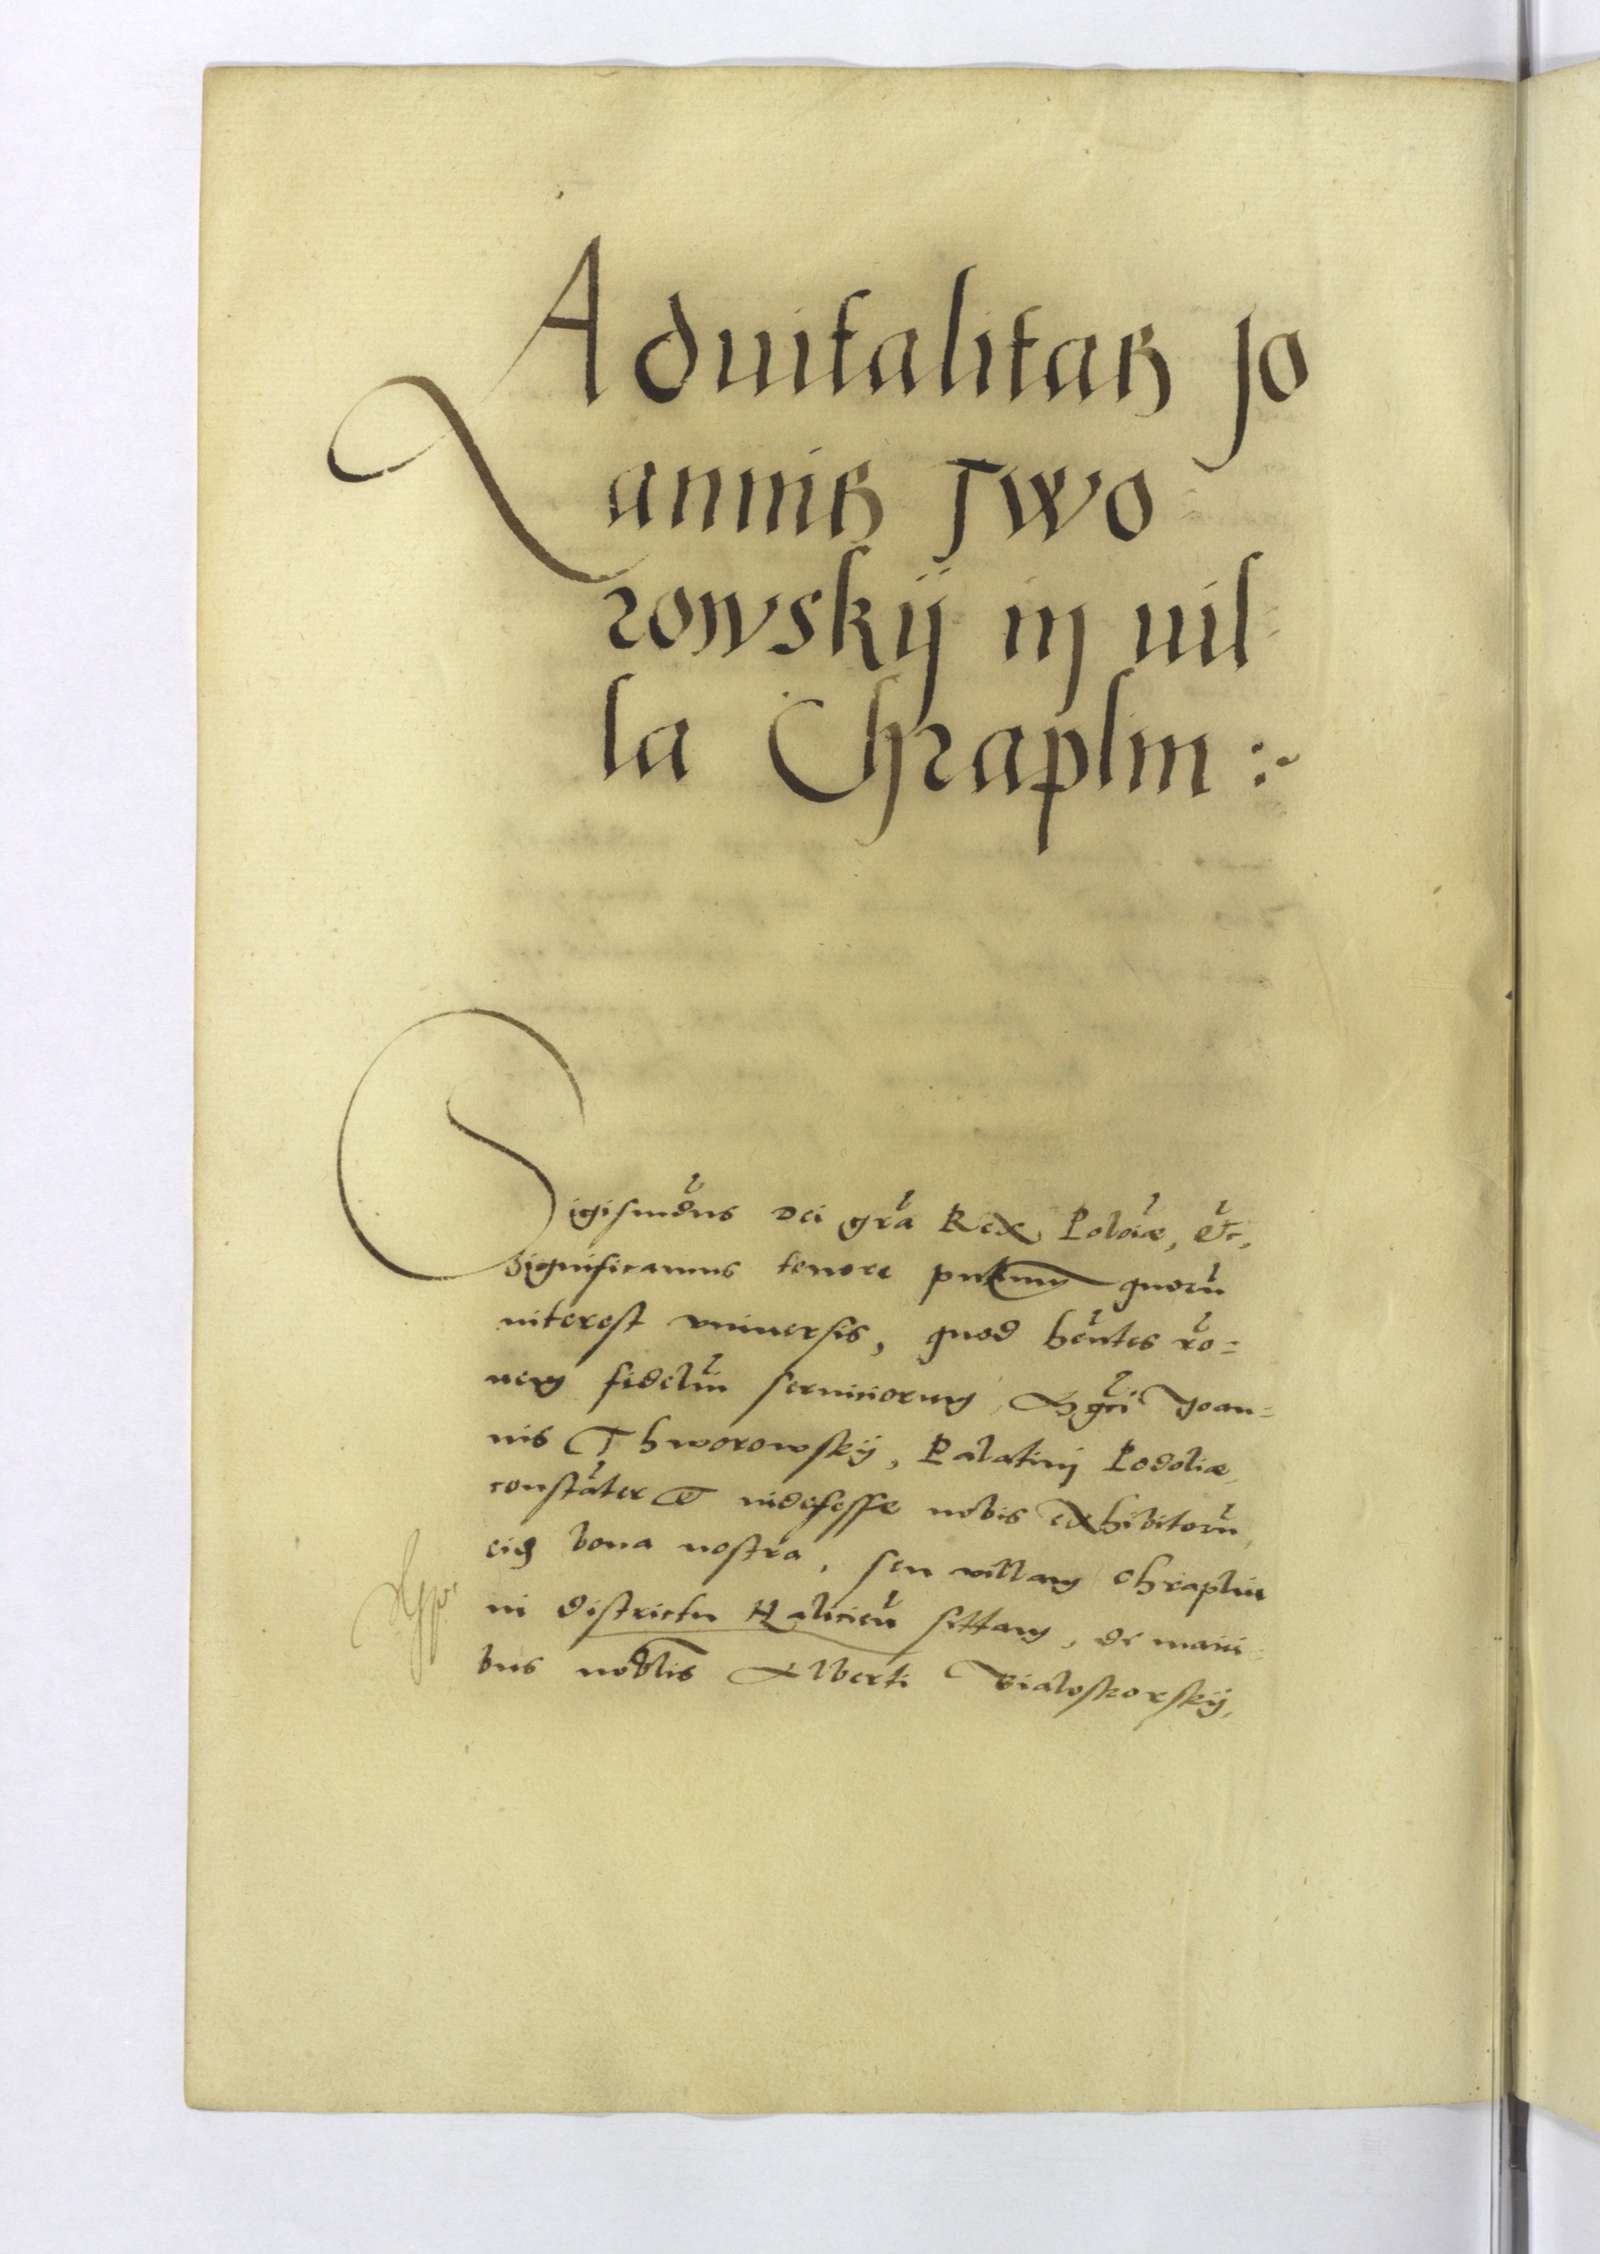 Aduitalitas Jo
annis Two
rowskij in uil
la Chraplin :~
Sigismūdus Dei gr̄a Rex Polon̄iæ, etc̄,
Significamus tenore pn̄tium quorū
interest vniuersis, quod hēntes rō=
nem fideliū seruitiorum, Mgc̄i Joan=
nis Thworowskij, Palatini Podoliæ
constāter et indefesse nobis exhibitorū,
eidem bona nostra, seu villam Chraplin
in districtu Halicieñ sittam, de mani=
bus nobl̄is Alberti Bialoskorskij,